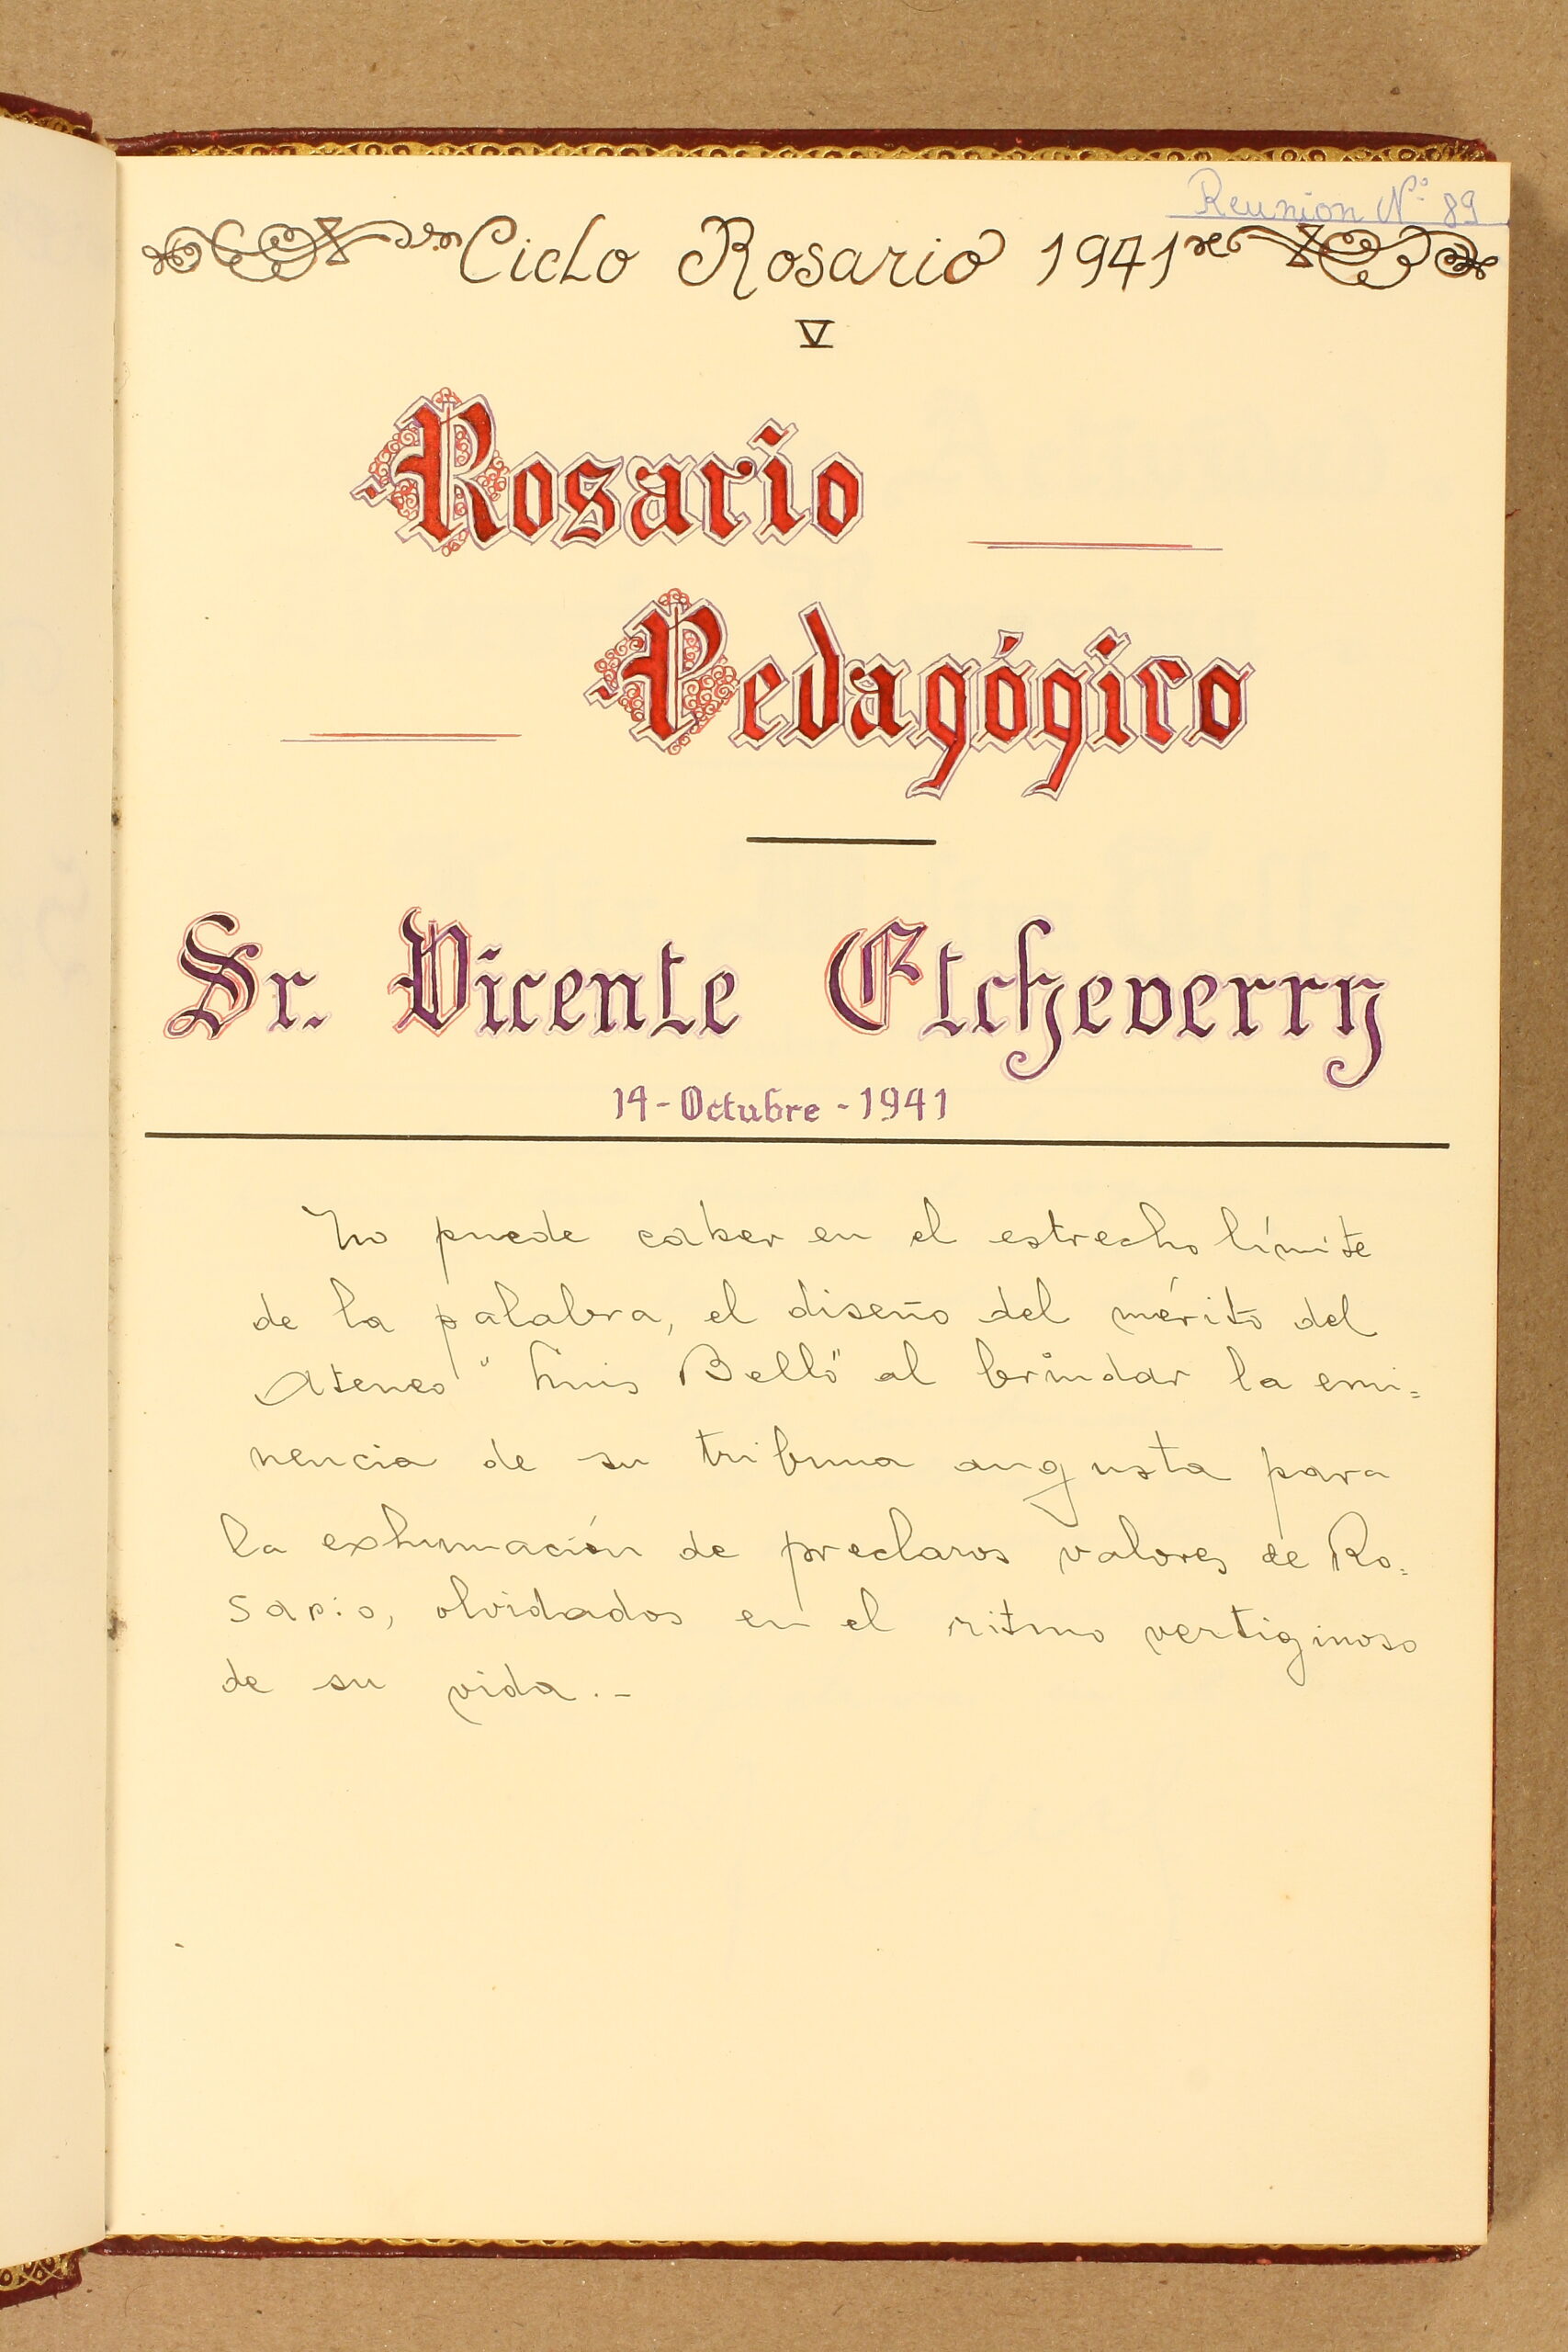 Reunion Nº 89
Ciclo Rosario 1941
V
Rosario
Pedagógico
Sr. Vicente Etcheverry
14-Octubre-1941
No puede caber en el estrecho límite
de la palabra, el diseño del mérito del
Ateneo "Luis Bello" al brindar la emi=
nencia de su tribuna augusta para
la exhumación de preclaros valores de Ro=
sario, olvidados en el ritmo vertiginoso
de su vida.-